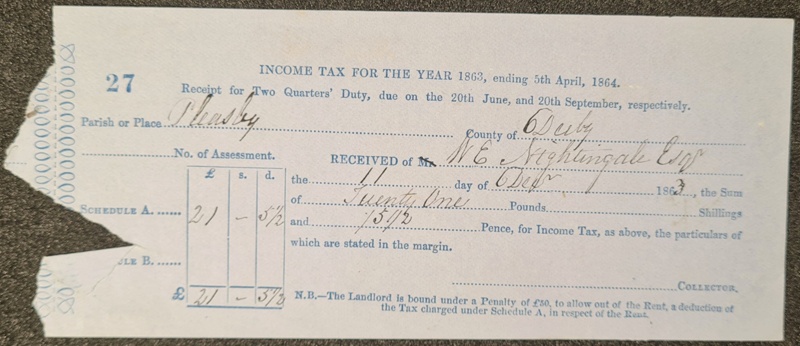 INCOME TAX FOR THE YEAR 1863, ending 5th April, 1864.
27
Receipt for Two Quarters' Duty, due on the 20th June, and 20th September, respectively.
Parish or Place Pleasby County of Derby
No. of Assessment.
RECEIVED of Mr. W E Nightingale Esqr
£ s. d.
the 11 day of Decr 1863, the Sum
of Twenty One Pounds Shillings
SCHEDULE A. 21 - 5½
and 5½ Pence, for Income Tax, as above, the particulars of
which are stated in the margin.
ULE B.
COLLECTOR.
£ 21 - 5½
N.B.—The Landlord is bound under a Penalty of £50, to allow out of the Rent, a deduction of
the Tax charged under Schedule A, in respect of the Rent.